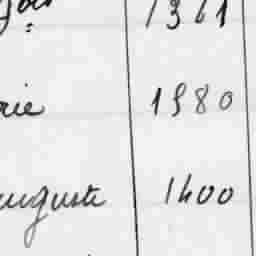 1361
rie 1880
auguste 1400